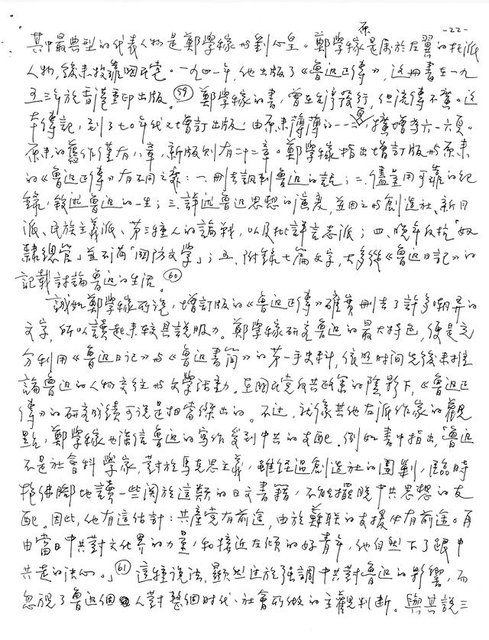 -22-
其中最典型的代表人物是鄭學稼與劉心皇。鄭學稼原是屬於左翼的托派
人物,後來投靠國民黨。一九四一年,他出版了《魯迅正傳》,這冊書在一九
五三年於香港重印出版。(59)鄭學稼的書,曾在到台發行,但流傳不廣。這
本傳記,到了七〇年代又增訂出版,由原來薄薄的一一頁,擴增為六一六頁。
原來的舊作僅有八章,新版則有二十二章。鄭學稼指出增訂版與原來
的《魯迅正傳》有不同之點:一、刪去諷刺魯迅的話;二、儘量用可靠的紀
錄,敘述魯迅的一生;三、詳述魯迅思想的演變,並因之與創造社、新月
派、民族主義派、第三種人的論戰,以及批評言志派;四、晚年反抗「奴
隸總管」並不滿「國防文學」;五、附錄七篇文字,大多從《魯迅日記》的
記載討論魯迅的生活。(60)
誠如鄭學稼所說,增訂版的《魯迅正傳》確實刪去了許多嘲弄的
文字,所以讀起來較具說服力。鄭學稼研究魯迅的最大特色,便是充
分利用《魯迅日記》與《魯迅書簡》的第一手史料,依照時間先後來推
論魯迅的人物交往與文學活動。在國民黨反共政策的陰影下,《魯迅正
傳》的研究成績可說是相當傑出的。不過,就像其他右派作家的觀
點,鄭學稼也深信魯迅的寫作受到中共的支配。例如書中指出,「魯迅
不是社會科學家,對於馬克思主義,雖經過創造社的圍剿,臨時
抱佛腳地讀一些關於這類的日文書籍,不能擺脫中共思想的支
配。因此,他有這估計:共產黨有前途,由於蘇聯的支援作有前途。再
由當日中共對文化界的力量,和接近左傾的好青年,他自然下了跟中
共走的決心。」(61)這種說法,顯然過於強調中共對魯迅的影響,而
忽視了魯迅個人對整個時代、社會所做的主觀判斷。與其說三